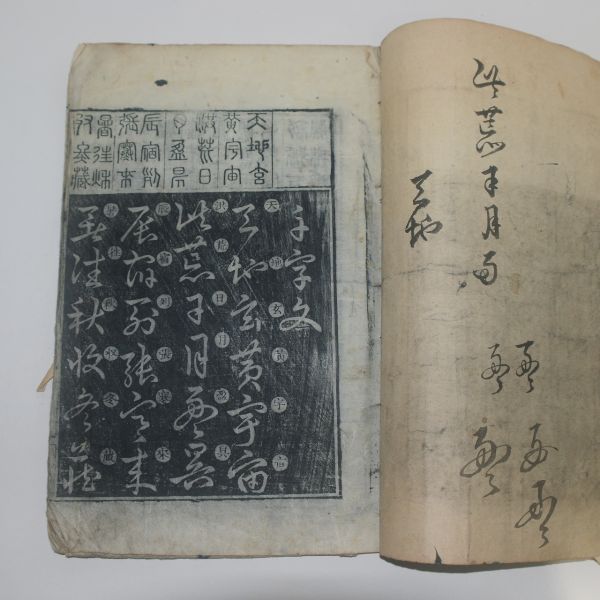 洪荒日月盈
天地
盈
盈
盈
盈
盈
天地玄
黃宇宙
洪荒日
月盈昃
辰宿列
張寒來
暑往秋
收冬藏
千字文
天地玄黃宇宙
天地玄黃宇宙
洪荒日月盈昃
洪荒日月盈昃
辰宿列張寒來
辰宿列張寒來
暑往秋收冬藏
暑往秋收冬藏